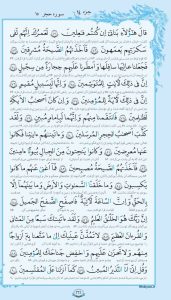 جزء ۱۴
سوره حجر ۱۵
قَالَ هٰٓؤُلَآءِ بَنَاتِىٓ اِنْ كُنْتُمْ فٰعِلِينَ ۝ لَعَمْرُكَ اِنَّهُمْ لَفِى
سَكْرَتِهِمْ يَعْمَهُونَ ۝ فَاَخَذَتْهُمُ الصَّيْحَةُ مُشْرِقِينَ ۝
فَجَعَلْنَا عَالِيَهَا سَافِلَهَا وَاَمْطَرْنَا عَلَيْهِمْ حِجَارَةً مِنْ سِجِّيلٍ ۝
اِنَّ فِى ذٰلِكَ لَاٰيَاتٍ لِلْمُتَوَسِّمِينَ ۝ وَاِنَّهَا لَبِسَبِيلٍ مُقِيمٍ ۝
اِنَّ فِى ذٰلِكَ لَاٰيَةً لِلْمُؤْمِنِينَ ۝ وَاِنْ كَانَ اَصْحٰبُ الْاَيْكَةِ
لَظٰلِمِينَ ۝ فَانْتَقَمْنَا مِنْهُمْ وَاِنَّهُمَا لَبِاِمَامٍ مُبِينٍ ۝ وَلَقَدْ
كَذَّبَ اَصْحٰبُ الْحِجْرِ الْمُرْسَلِينَ ۝ وَاٰتَيْنٰهُمْ اٰيَاتِنَا فَكَانُوا
عَنْهَا مُعْرِضِينَ ۝ وَكَانُوا يَنْحِتُونَ مِنَ الْجِبَالِ بُيُوتًا اٰمِنِينَ
۝ فَاَخَذَتْهُمُ الصَّيْحَةُ مُصْبِحِينَ ۝ فَمَآ اَغْنٰى عَنْهُمْ مَا كَانُوا
يَكْسِبُونَ ۝ وَمَا خَلَقْنَا السَّمٰوَاتِ وَالْاَرْضَ وَمَا بَيْنَهُمَآ اِلَّا
بِالْحَقِّ وَاِنَّ السَّاعَةَ لَاٰتِيَةٌ فَاصْفَحِ الصَّفْحَ الْجَمِيلَ ۝
اِنَّ رَبَّكَ هُوَ الْخَلَّاقُ الْعَلِيمُ ۝ وَلَقَدْ اٰتَيْنَاكَ سَبْعًا مِنَ الْمَثَانِى
وَالْقُرْاٰنَ الْعَظِيمَ ۝ لَا تَمُدَّنَّ عَيْنَيْكَ اِلٰى مَا مَتَّعْنَا بِهٓ اَزْوَاجًا
مِنْهُمْ وَلَا تَحْزَنْ عَلَيْهِمْ وَاخْفِضْ جَنَاحَكَ لِلْمُؤْمِنِينَ ۝
وَقُلْ اِنِّىٓ اَنَا النَّذِيرُ الْمُبِينُ ۝ كَمَآ اَنْزَلْنَا عَلَى الْمُقْتَسِمِينَ ۝